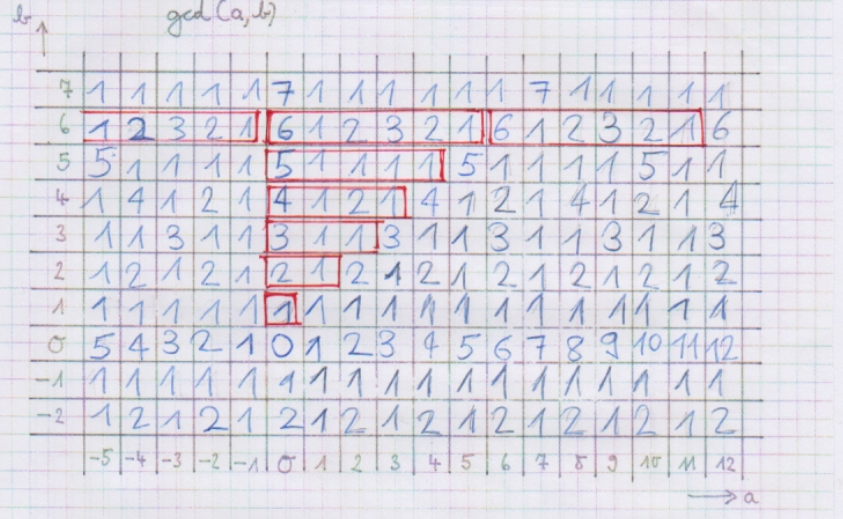 b gcd(a,b)
7 1 1 1 1 1 7 1 1 1 1 1 1 7 1 1 1 1 1
6 1 2 3 2 1 6 1 2 3 2 1 6 1 2 3 2 1 6
5 5 1 1 1 1 5 1 1 1 1 5 1 1 1 1 5 1 1
4 1 4 1 2 1 4 1 2 1 4 1 2 1 4 1 2 1 4
3 1 1 3 1 1 3 1 1 3 1 1 3 1 1 3 1 1 3
2 1 2 1 2 1 2 1 2 1 2 1 2 1 2 1 2 1 2
1 1 1 1 1 1 1 1 1 1 1 1 1 1 1 1 1 1 1
0 5 4 3 2 1 0 1 2 3 4 5 6 7 8 9 10 11 12
-1 1 1 1 1 1 1 1 1 1 1 1 1 1 1 1 1 1 1
-2 1 2 1 2 1 2 1 2 1 2 1 2 1 2 1 2 1 2
-5 -4 -3 -2 -1 0 1 2 3 4 5 6 7 8 9 10 11 12
a